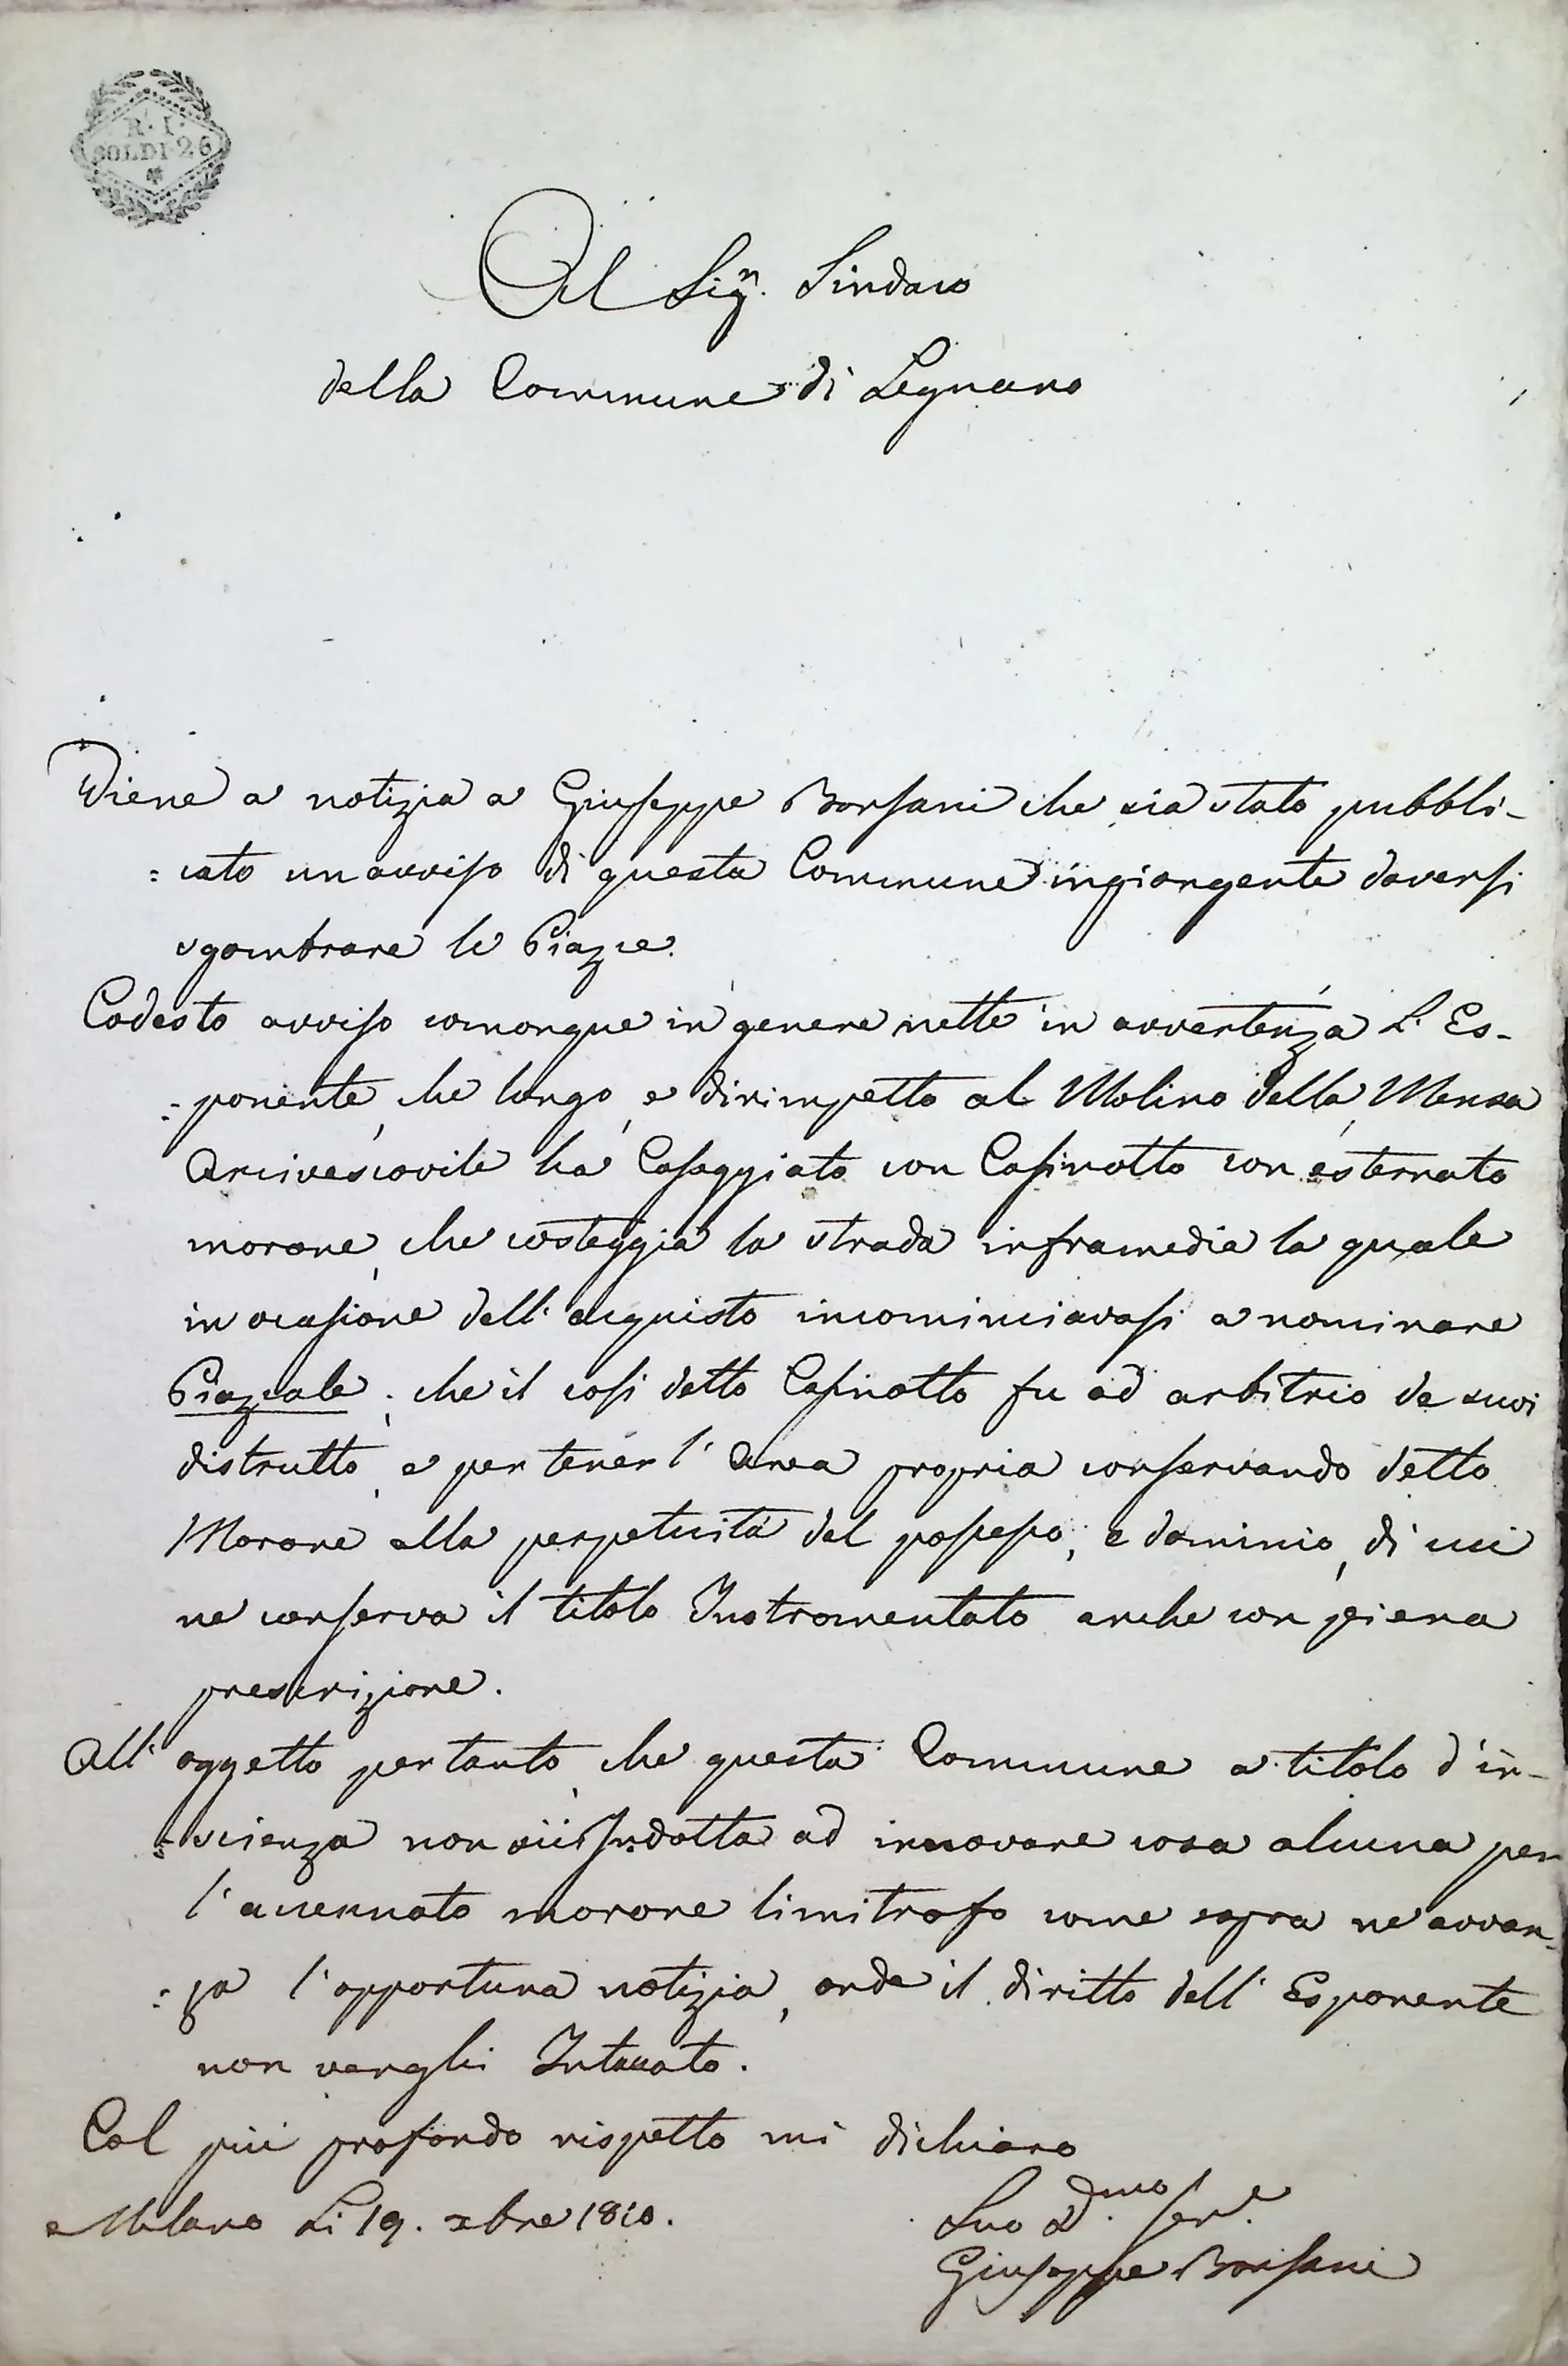 R. I.
SOLDI 26
Al Sig.r Sindaco
della Commune di Legnano
Viene a notizia a Giuseppe Borsani che sia stato pubbli-
: cato un avviso di questa Commune ingiongente doversi
sgombrare le Piazze.
Codesto avviso comonque in genere mette in avvertenza L'Es-
: ponente, che longo, e dirimpetto al Molino della Mensa
Arcivescovile ha Casaggiato con Casinotto con esternato
morone, che costeggia la strada inframedia la quale
in ocasione dell'acquisto incominciavasi a nominare
Piazzale; che il così detto Casinotto fu ad arbitrio de suoi
distrutto, e per tener l'Area propria conservando detto
Morone alla perpetuità del possesso, e dominio, di cui
ne conserva il titolo Instromentato anche con piena
prescrizione.
All'oggetto per tanto, che questa Commune a titolo d'in-
: scienza non sii Indotta ad innovare cosa alcuna per
l'accennato morone limitrofo come sopra ne avvan-
: za l'opportuna notizia, onde il diritto dell'Esponente
non venghi Intaccato.
Col più profondo rispetto mi dichiaro
Milano Li 19. xbre 1810.
Suo D.mo Ser.e
Giuseppe Borsani